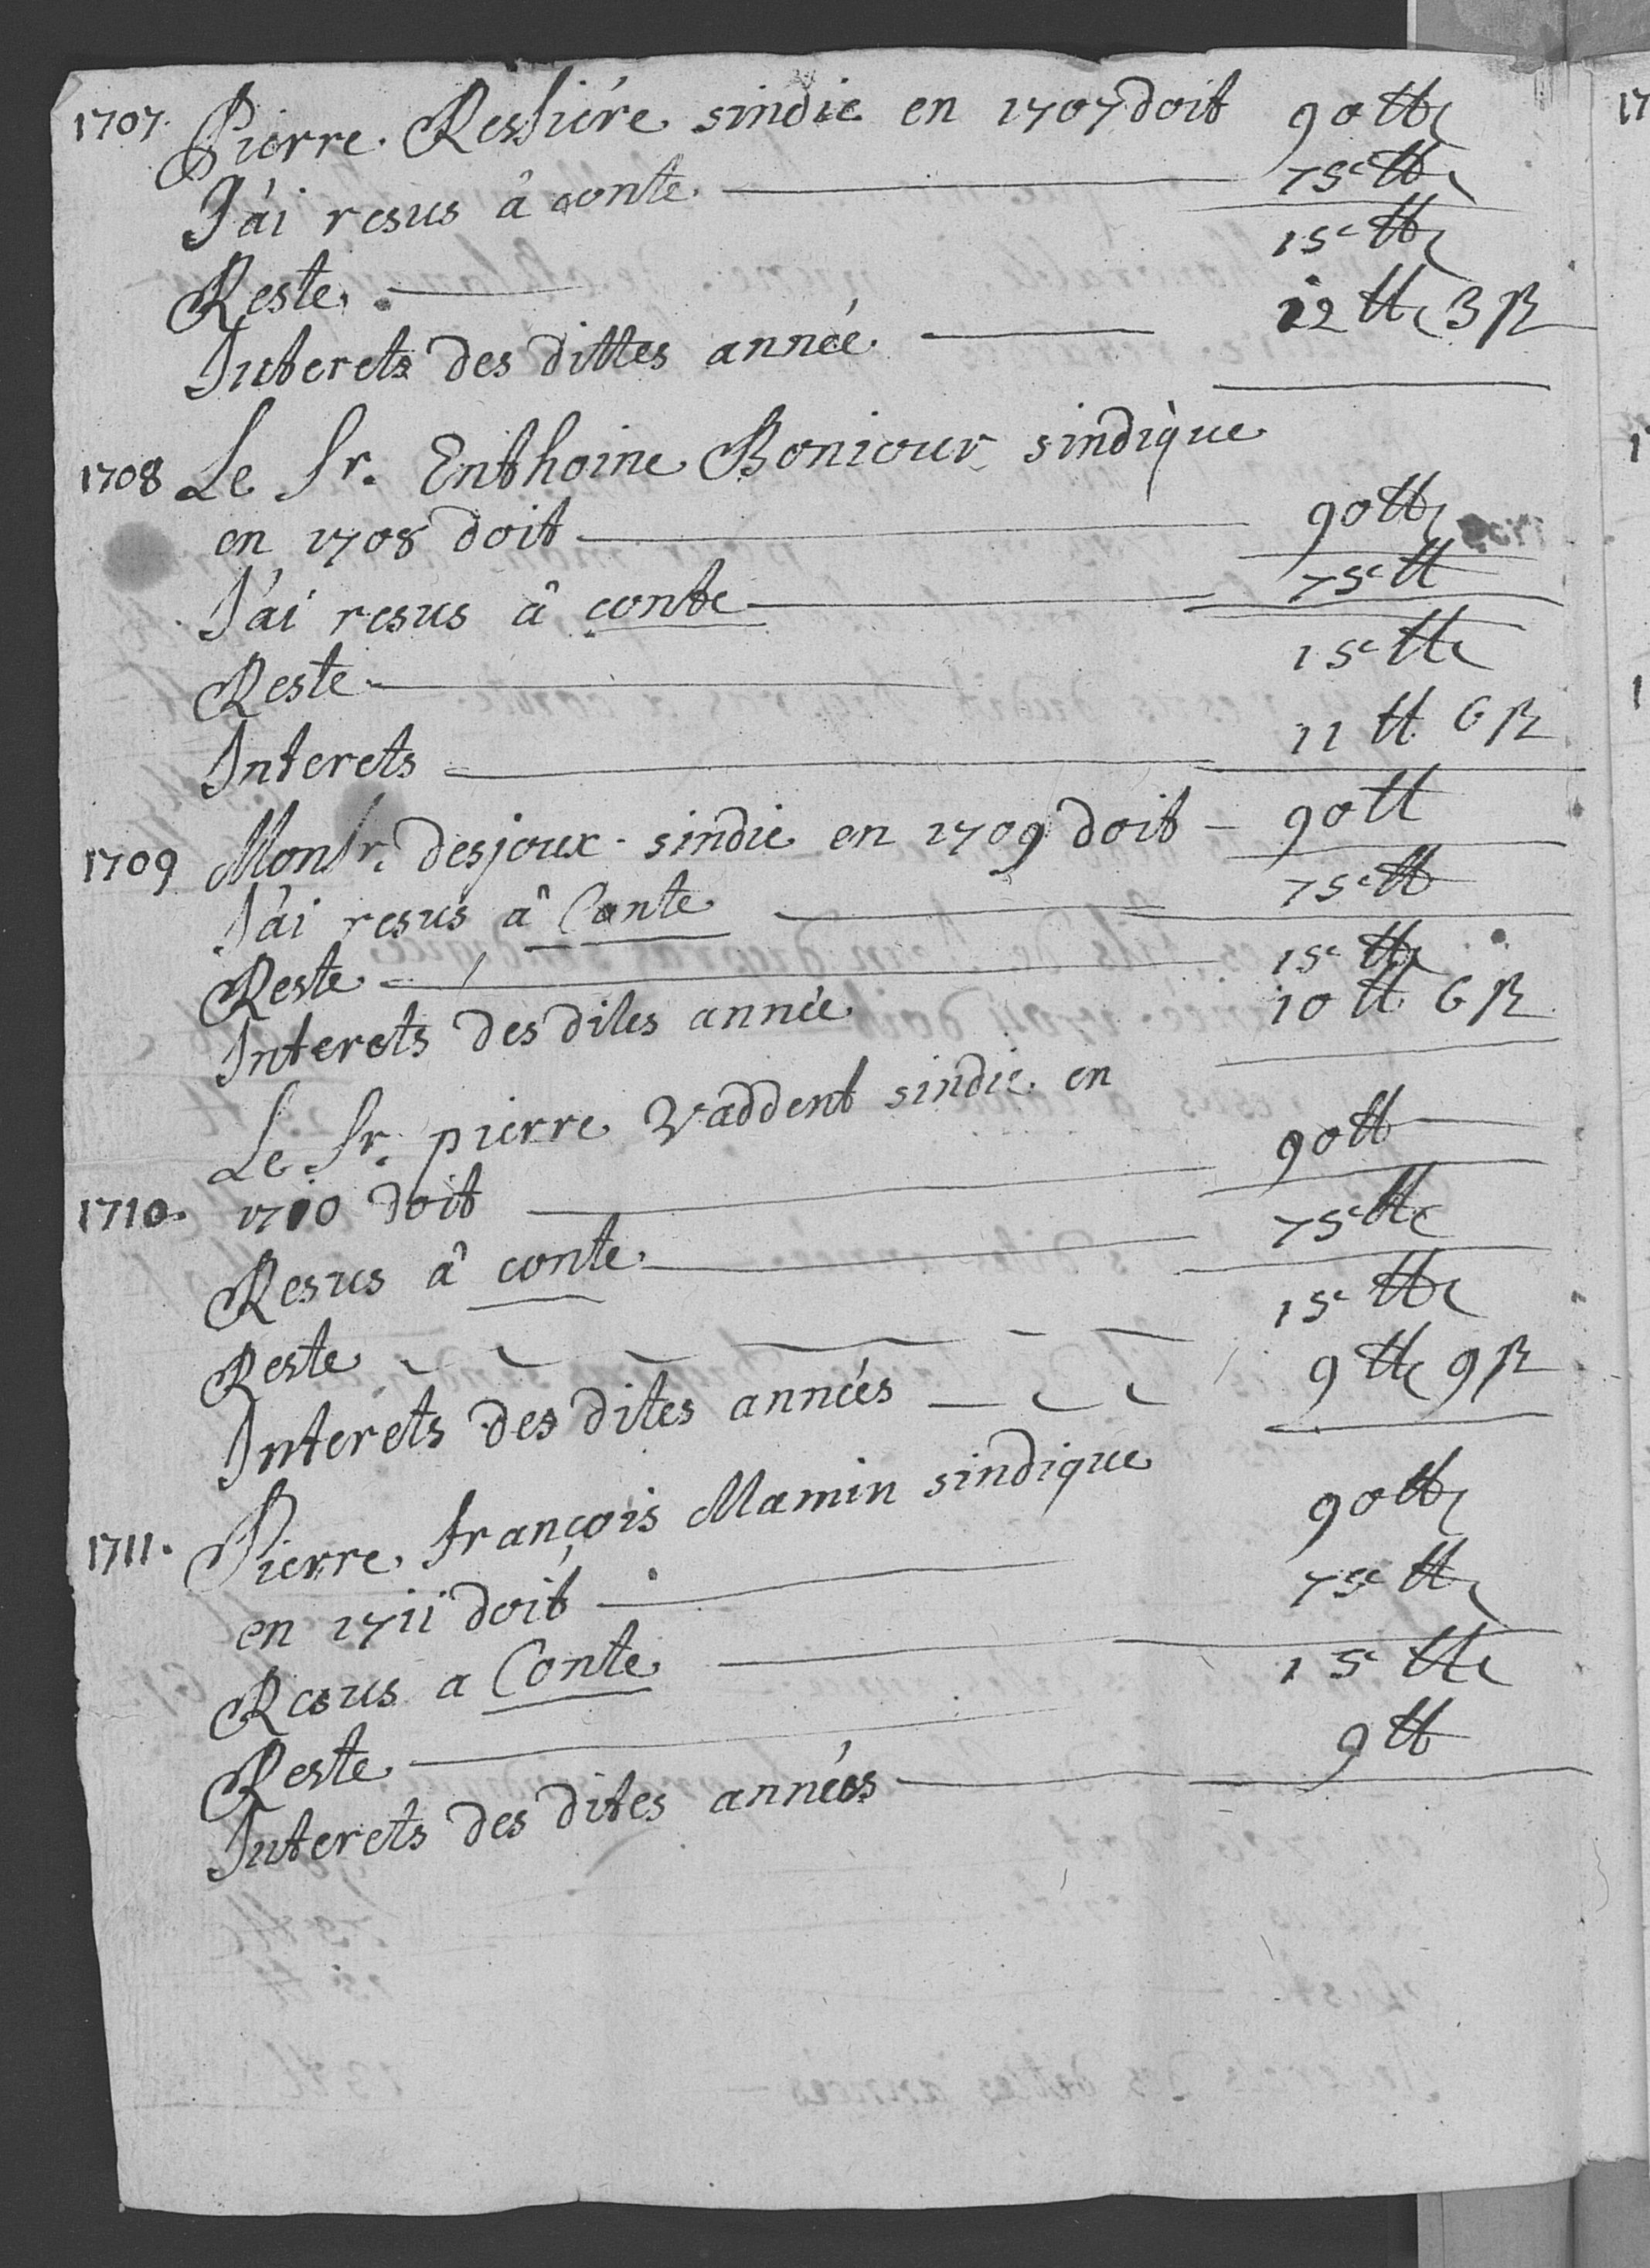 1707. Pierre. Ressiére sindic en 1707 doit 90 ₶
J'ai resus â conte. 75 ₶
Reste. 15 ₶
Interets des dittes année 12 ₶ 3 ß
1708 Le Sr. Enthoine Boniour sindique
en 1708 doit 90 ₶
J'ai resus â conte 75 ₶
Reste 15 ₶
Interets 11 ₶ 6 ß
1709 Monsr. desjoux sindic en 1709 doit 90 ₶
J'ai resus â Conte 75 ₶
Reste 15 ₶
Interets des dites année 10 ₶ 6 ß
Le Sr. pierre Vaddent sindic en
1710. 1710 doit 90 ₶
Resus â conte 75 ₶
Reste 15 ₶
Interéts des dites années 9 ₶ 9 ß
1711. Pierre françois Mamin sindique
en 1711 doit 90 ₶
Resus a Conte 75 ₶
Reste 15 ₶
Interets des dites années 9 ₶